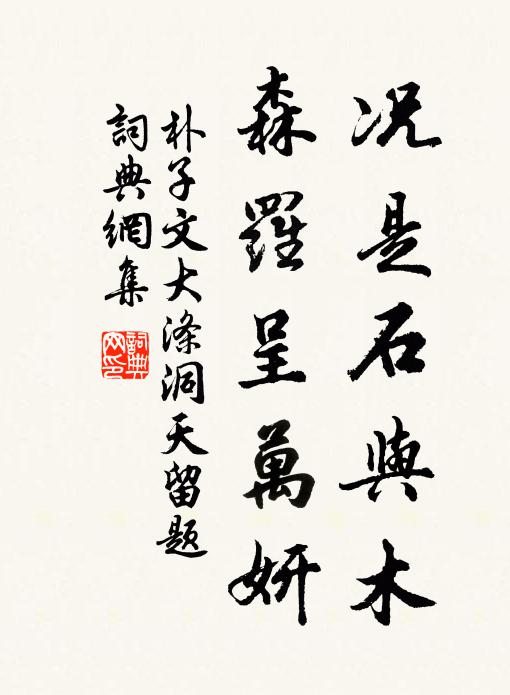 況是石與木
森羅呈萬妍
朴子文大滌洞天留题
詞典網集
詞典網印